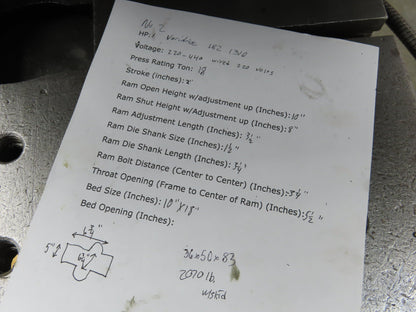 No. 2
HP: 1 Varidrive
Voltage: 220-440 wired 220 volts
Press Rating Ton:
Stroke (inches): 2"
Ram Open Height w/adjustment up (Inches): 10"
Ram Shut Height w/Adjustment up (Inches): 8"
Ram Adjustment Length (Inches): 2½"
Ram Die Shank Size (Inches): 1½"
Ram Die Shank Length (Inches): 3¼"
Ram Bolt Distance (Center to Center) (Inches): 3¼"
Throat Opening (Frame to Center of Ram) (Inches): 5½"
Bed Size (Inches): 10" x 18"
Bed Opening (Inches):
6¾"
5"
36x50x83
2070 lb.
w/skid